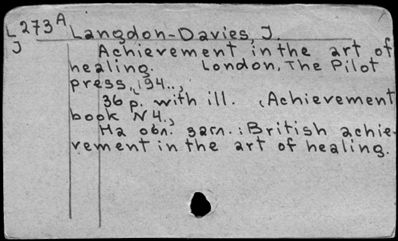 L273A Langdon-Davies, J.
J Achievement in the art of
healing. London, The Pilot
press, 194..,
36 p. with ill. (Achievement
book N4.,
На обл. загл.: British achie-
vement in the art of healing.